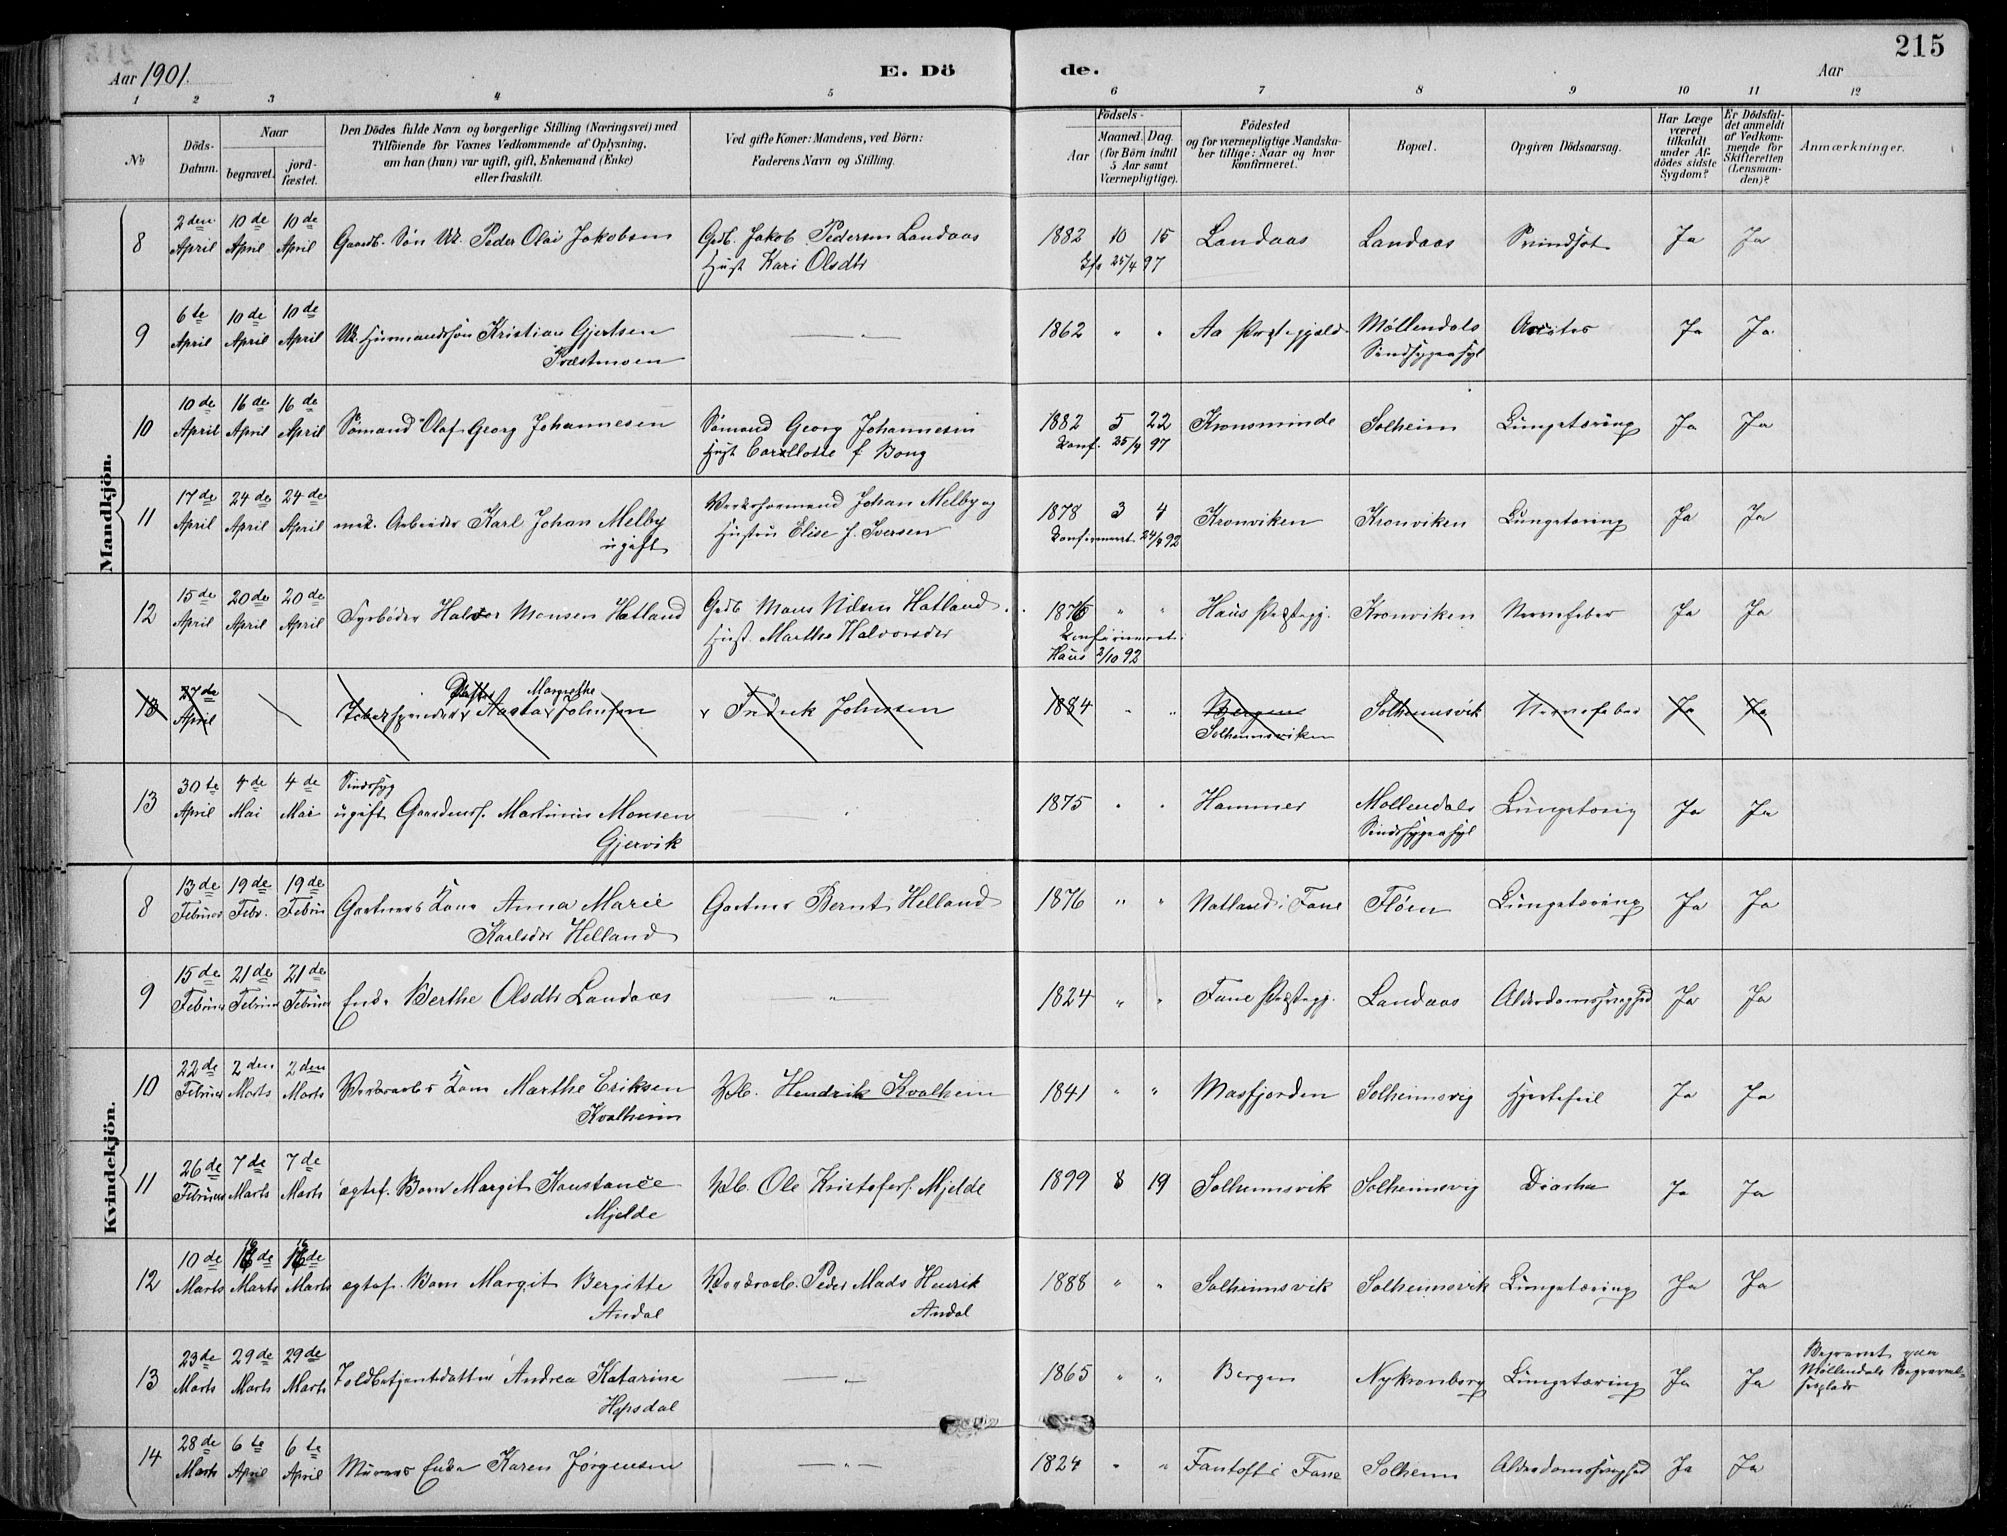 215
Aar 1901.
E. Dö de.
Aar
1 2 3 4 5 6 7 8 9 10 11 12
No
Döds-Datum.
Naar
begravet.
jordfæstet.
Den Dödes fulde Navn og borgerlige Stilling (Næringsvei) med
Tilföiende for Voxnes Vedkommende af Oplysning,
om han (hun) var ugift, gift, Enkemand (Enke)
eller fraskilt.
Ved gifte Koner: Mandens, ved Börn:
Faderens Navn og Stilling.
Födsels-
Aar
Maaned. Dag.
(for Börn indtil
5 Aar samt
Værnepligtige).
Födested
og for værnepligtige Mandskaber tillige: Naar og hvor
konfirmeret.
Bopæl.
Opgiven Dödsaarsag.
Har Læge
været
tilkaldt
under Afdödes sidste
Sygdom?
Er Dödsfaldet anmeldt
af Vedkommende for
Skifteretten
(Lensmanden)?
Anmærkninger.
Mandkjön.
8 2den April 10de April 10de April Gaardb. Sön Uk. Peder Olai Jakobsen Grdb. Jakob Pedersen Landaas 1882 10 15 Landaas Landaas Svindsot Ja Ja
Hust Kari Olsdtr 25/4 97
9 6te April 10de April 10de April Uk. Husmandssön Kristian Gjertsen — " — 1862 " " Aa Præstegjæld Möllendals Ja Ja
Præstmoen Sindsygeasyl
10 10de April 16de April 16de April Sömand Olaf Georg Johannesen Sömand Georg Johannesen 1882 5 22 Kronsminde Solheim Lungetæring Ja Ja
Hust f Bong Konf. 25/4 97
11 17de April 24de April 24de April mek. Arbeider Karl Johan Melby Verksformand Johan Melby og 1878 3 4 Kronviken Kronviken Lungetæring Ja Ja
ugift Hustru Elise f. Iversen Konfirmeret 24/4 92
12 15de April 20de April 20de April Fyrböder Halvor Monsen Hatland Grdb Mons Nilsen Hatland 1876 " " Haus Præstegj. Kronviken Nervefeber Ja Ja
Hust. Marthe Halvorsdtr Konfirmeret
Haus 2/10 92
13 27de April Datter Margrethe
Aasta Johnsen Fredrik Johnsen 1884 " " Bergen Solheimsvik Nervefeber Ja Ja
Solheimsviken
13 30te April 4de Mai 4de Mai Sindssyg
ugift Gaardmss. Martinus Monsen 1875 " " Hammer Möllendals Lungetæring Ja Ja
Gjervik Sindssygeasyl
Kvindekjön.
8 13de Februar 19de Febr. 19de Februar Gartners Kone Anna Marie Gartner Bernt Helland 1876 " " Natland i Fane Flöen Lungetæring Ja Ja
Karlsdtr Helland
9 15de Februar 21de Februar 21de Februar Enke Berthe Olsdtr Landaas " 1824 " " Fane Præstegj. Landaas Alderdomssvaghed Ja Ja
10 22de Februar 2den Marts 2den Marts Kone Marthe Eriksen Hendrik Kvalheim 1841 " " Masfjorden Solheimsvig Hjertefeil Ja Ja
Kvalheim
11 26de Februar 7de Marts 7de Marts ægtef. Barn Margit Konstance Ole Kristofers. Mjelde 1899 8 19 Solheimsvik Solheimsvig Diarhe Ja Ja
Mjelde
12 10de Marts 16de Marts 16de Marts ægtef. Barn Margit Bergitte Peder Mads Henrik 1888 " " Solheimsvik Solheimsvik Lungetæring Ja Ja
Andal Andal
13 23de Marts 29de Marts 29de Marts Toldbetjentdatter Andrea Katarine — " — 1865 " " Bergen Nykronborg Lungetæring Ja Ja Begravet paa
Hopsdal Möllendals Begravelsesplads
14 28de Marts 6te April 6te April Murers Enke Karen Jörgensen — " — 1824 " " Fantoft i Fane Solheim Alderdomssvaghed Ja Ja